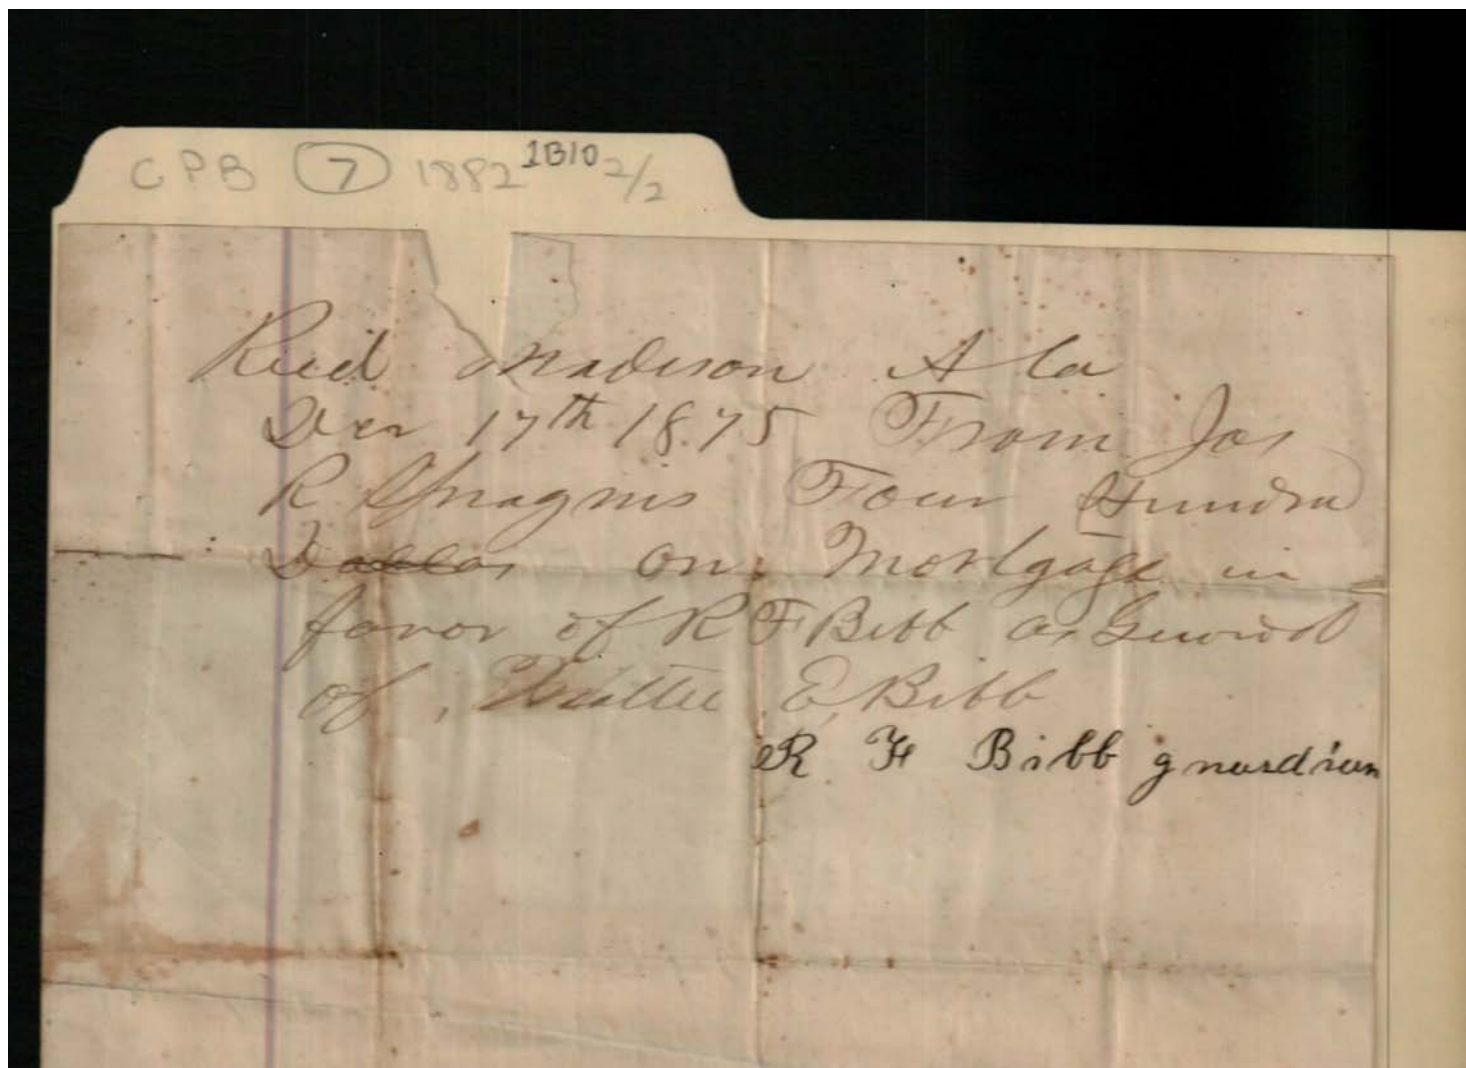 CPB 7 1882 1B10 2/2
Recd Madison Ala
Dec 17th 1875 From Jas
R. Spragins Four Hundrd
Dollars on Mortgage in
favor of R F Bibb as Guard
of, E, Bibb
R F Bibb guardian